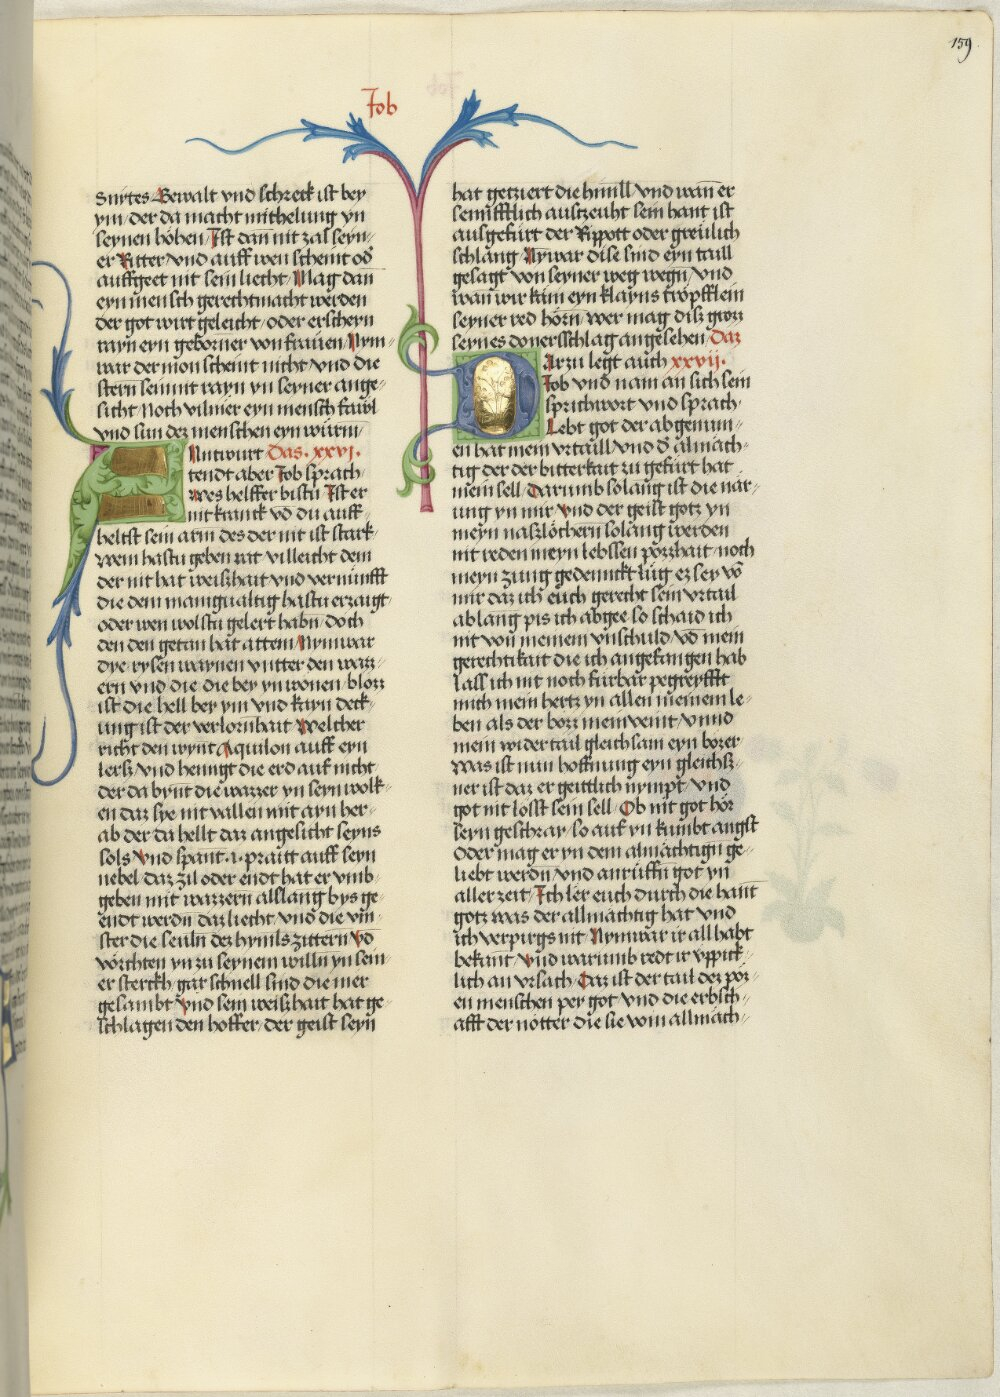 159
Job
Suites Gewalt vnd schreck ist bey
ym der da macht mithelung yn
seynen höhen Ist dan nit zal seyn-
er Ritter vnd auff wen scheint od
auffgeet nit sein liecht Mag dan
eyn mensch gerechtmacht werden
der got wirt geleicht oder erscheyn
rayn eyn geborner von frawen Nym-
war der mon scheint nicht vnd die
stern seinnt rayn yn seyner ange-
sicht Noch vilmer eyn mensch fawl
vnd sun dez menschen eyn würm
Antwurt Das .xxvi.
tendt aber Job sprach
Wes helffer bistu Ist er
nit kranck vō du auff-
heltst sein arm des der nit ist starck
Wem hastu geben rat villeicht dem
der nit hat weißhait vnd vernunfft
die dem manigualtig hastu erzaigt
oder wen wolstu gelert habn doch
den den getan hat attem Nymwar
dye rysen waynen vntter den wazz-
ern vnd die die bey yn wonen blozz
ist die hell bey ym vnd kayn deck-
ung ist der verlornhait Welcher
richt den wynt Aquilon auff eyn
lersz vnd henngt die erd auf nicht
der da bynt die wazzer yn seyn wolk-
en daz sye nit vallen mit ayn her-
ab der da hellt daz angesicht seyns
sols vnd spant .i. praitt auff seyn
nebel daz zil oder endt hat er vmb-
geben mit wazzern alslang bys ge-
endt werdn daz liecht vnd die vin-
ster die sewln dez hymls zittern vō
vörchten yn zu seynem willn yn sein-
er sterckh gar schnell sind die mer
gesambt vnd sein weißhait hat ge-
schlagen den hoffer der geist seyn
hat geziert die himll vnd wan er
senifftlich auszeuht sein hant ist
ausgefürt der Rippott oder grewlich
schlang Nywar dise sind eyn taill
gesagt von seyner weg wegn vnd
wan wir kaim eyn klayns tröpfflein
seyner red hörn wer mag disz groz
seynes donerschlag angesehen Daz
Darzu legt auch xxvij.
Job vnd nam an sich sein
sprichwort vnd sprach
Lebt got der abgenum-
en hat mein vrtaill vnd d almäch-
tig der der bitterkait zu gefürt hat
mein sell Darumb solang ist die nar-
ung yn mir vnd der geist gotz yn
meyn naslöchern solang werden
nit reden meyn lebssen pözzhait noch
meyn zung gedennckt lüg ez sey vō
mir daz ich euch gerecht sein vrtail
ablang pis ich abgee so schaid ich
nit von meinem vnschuld vō mein
gerechtikait die ich angefangen hab
lass ich nit noch fürbar pegreyfft
mich mein hertz yn allen meinem le-
ben als der bözz mein veint vnnd
mein wider tail gleichsam eyn bozer
Was ist nun hoffnung eyn gleichsz-
ner ist daz er geittlich nympt vnd
got nit lösst sein sell Ob nit got hör
seyn geschray so auf yn kumbt angst
Oder mag er yn dem almächtign ge-
liebt werdn vnd anrüffn got yn
aller zeit Ich ler euch durch die hant
gotz was der allmächtig hat vnd
ich verpirgs nit Nymwar ir all habt
bekant vnd warumb redt ir vppick-
lich an vrsach Daz ist der tail dez pöz-
en menschen pey got vnd die erbsch-
afft der nötter die sie vom allmäch-